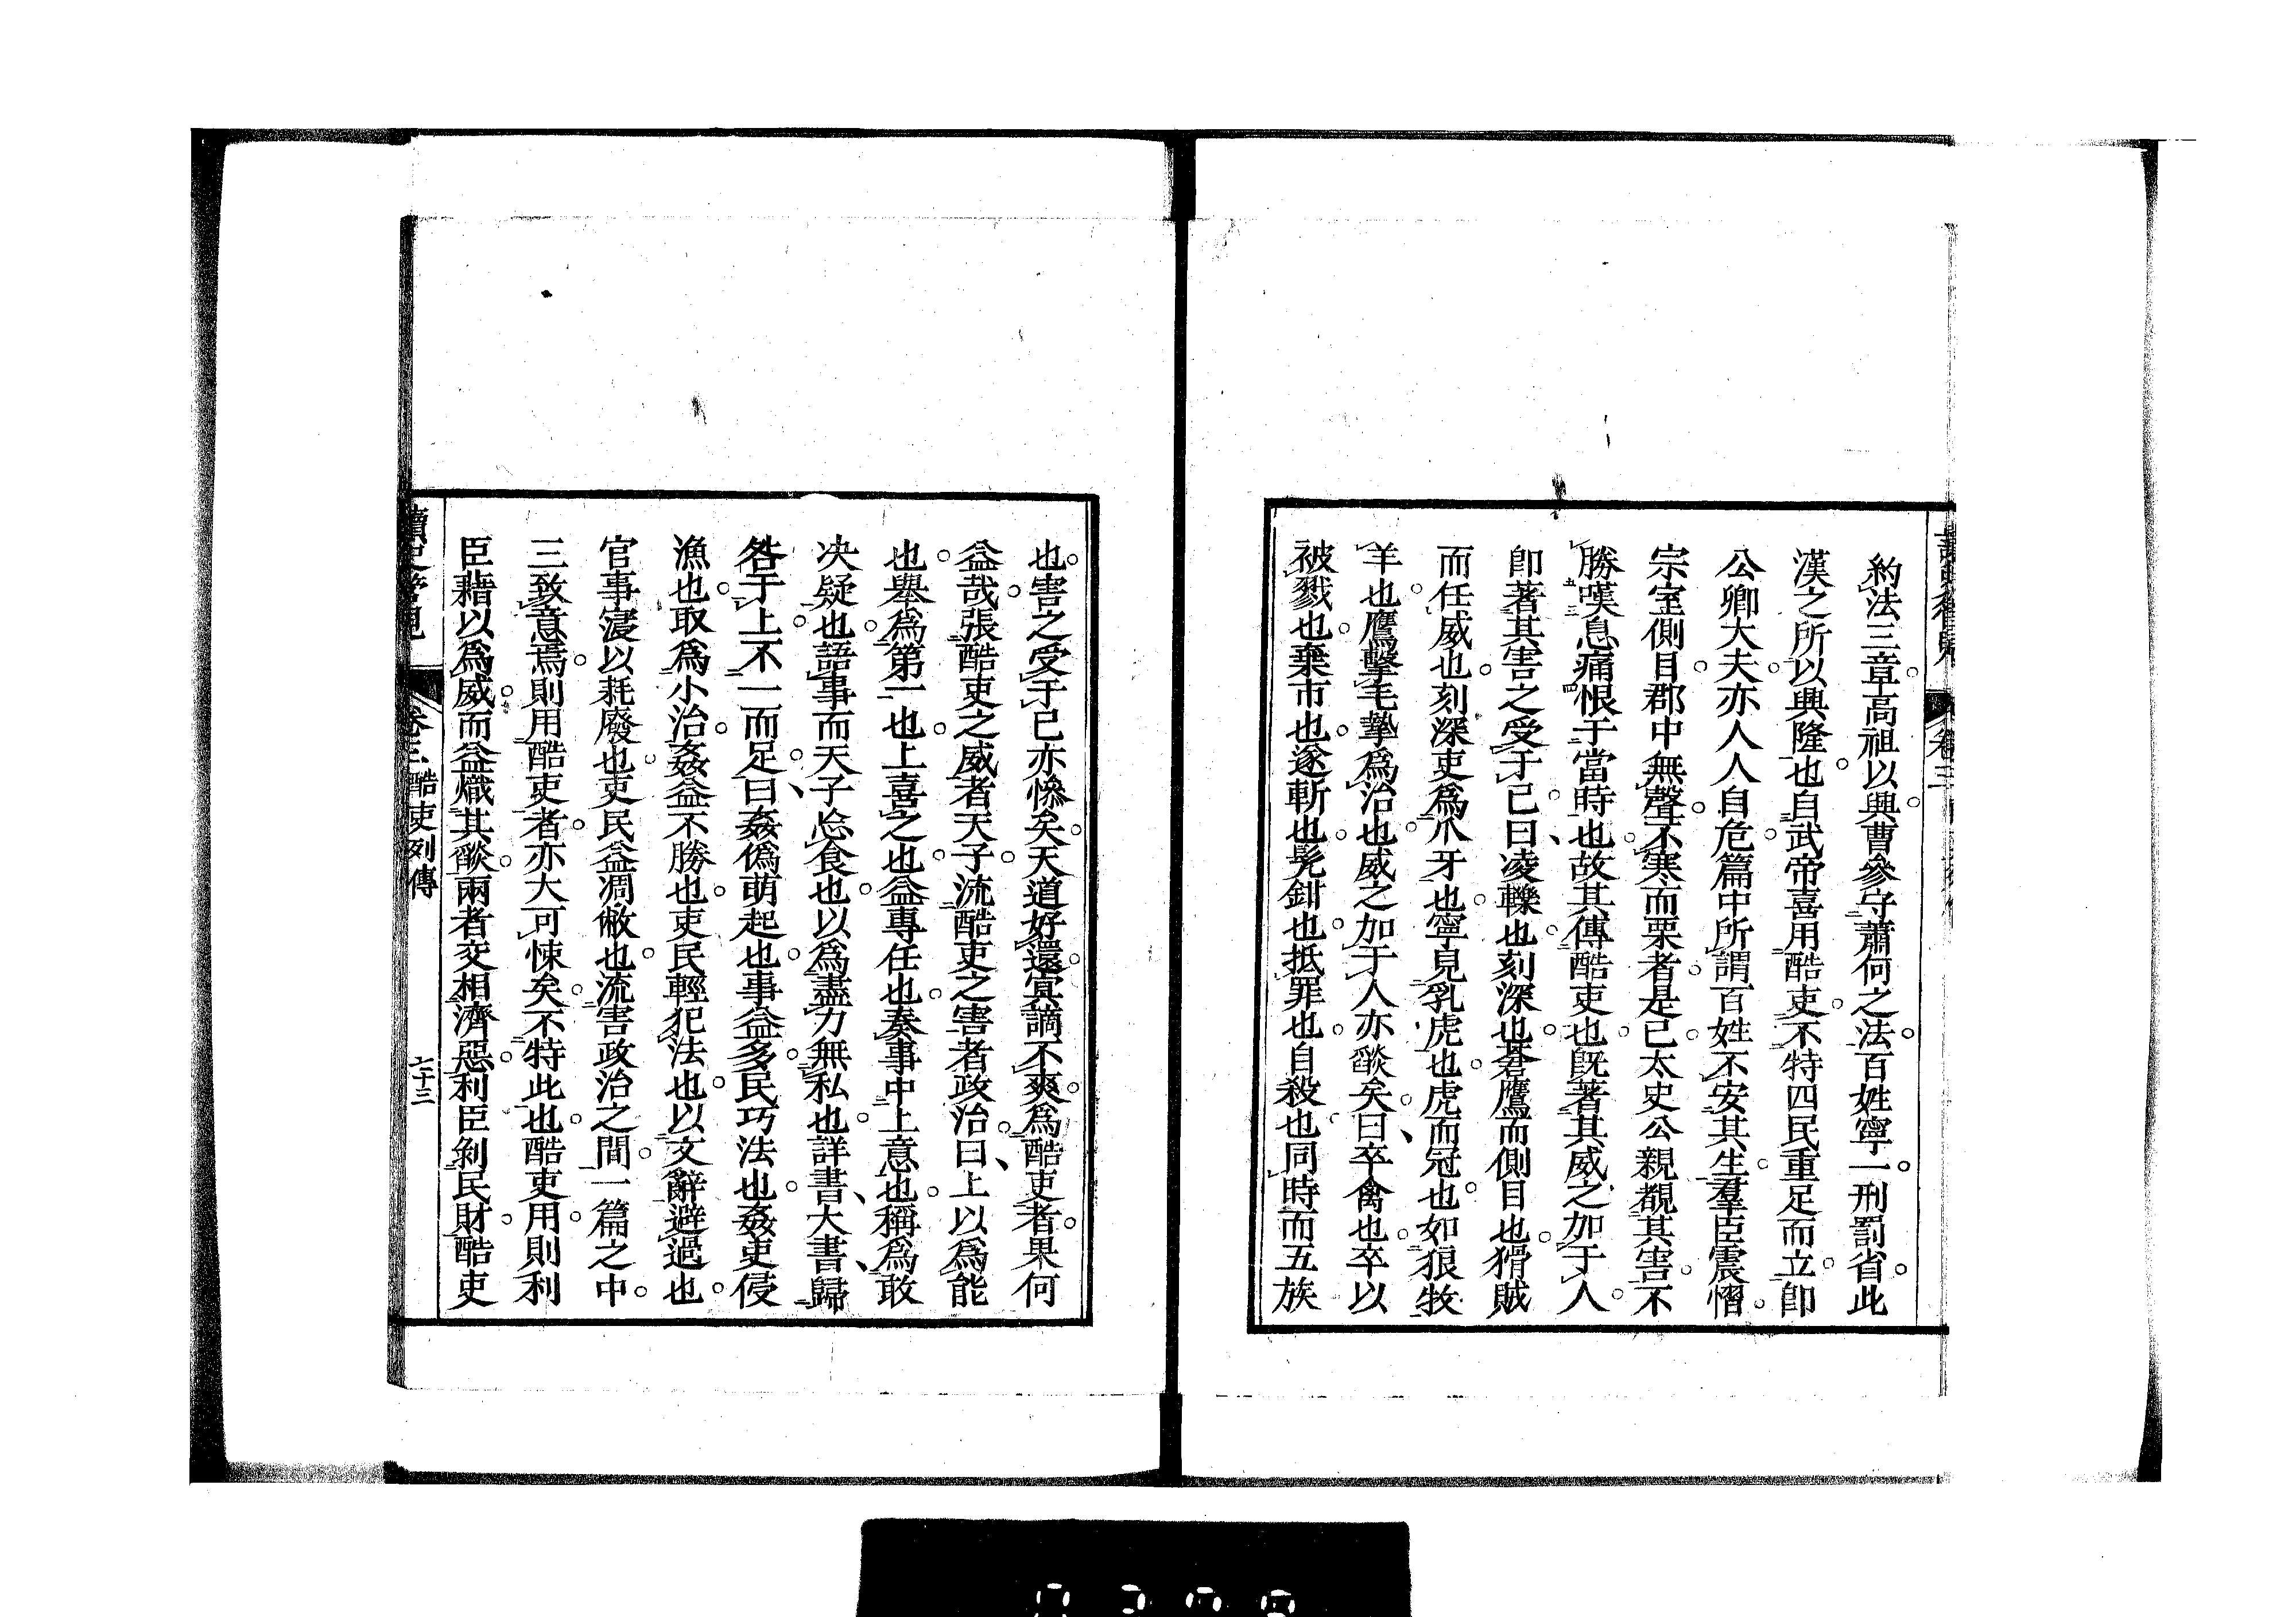 約法三章高祖以興曹參守蕭何之法百姓寧一刑罰省此
漢之所以興隆也自武帝喜用酷吏不特四民重足而立卽
公卿大夫亦人人自危篇中所謂百姓不安其生羣臣震慴
宗室側目郡中無聲不寒而栗者是已太史公親覩其害不
勝嘆息痛恨于當時也故其傳酷吏也旣著其威之加于人
卽著其害之受于己曰凌轢也刻深也蒼鷹而側目也猾賊
而任威也刻深吏爲爪牙也寧見乳虎也虎而冠也如狼牧
羊也鷹擊毛摯爲治也威之加于人亦燄矣曰卒禽也卒以
被戮也棄市也遂斬也髡鉗也抵罪也自殺也同時而五族
也害之受于己亦慘矣天道好還冥謫不爽爲酷吏者果何
益哉張酷吏之威者天子流酷吏之害者政治曰上以爲能
也舉爲第一也上喜之也益專任也奏事中上意也稱爲敢
决疑也語事而天子忩食也以爲盡力無私也詳書大書歸
咎于上不一而足曰姦僞萌起也事益多民巧法也姦吏侵
漁也取爲小治姦益不勝也吏民輕犯法也以文辭避過也
官事寖以耗廢也吏民益凋敝也流害政治之間一篇之中
三致意焉則用酷吏者亦大可悚矣不特此也酷吏用則利
臣藉以爲威而益熾其燄兩者交相濟惡利臣剝民財酷吏
讀史管見 卷三 酷吏列傳 七十三